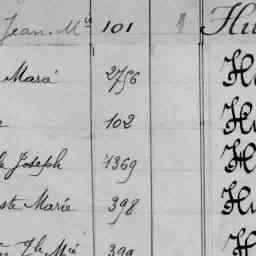 Jean Mie 101 1 Hu
Mara 2756 Hu
102 Hu
Joseph 1369 Hu
ste Marie 398 Hu
399 H